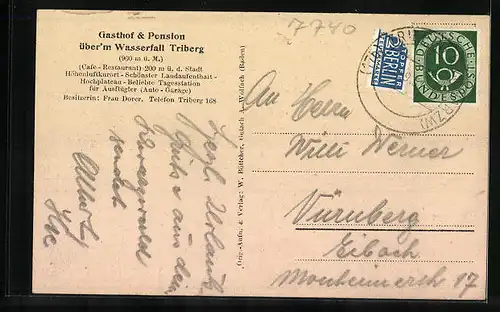 7740
Gasthof & Pension
über'm Wasserfall Triberg
(900 m ü. M.)
(Cafe - Restaurant) 200 m ü. d. Stadt
Höhenluftkurort - Schönster Landaufenthalt -
Hochplateau - Beliebte Tagesstation
für Ausflügler (Auto - Garage)
Besitzerin: Frau Dorer. Telefon Triberg 168
Herzl Urlaubs
Grüße aus dem
Schwarzwald
sendet
Albert
Orig.-Aufn. u. Verlag: W. Böttcher, Gutach A. Wolfach (Baden)
NOTOPFER
2 BERLIN
STEUERMARKE
DEUTSCHE
BUNDESPOST
10
An Herrn
Willi Werner
Nürnberg
Eibach
Monheimerstr 17